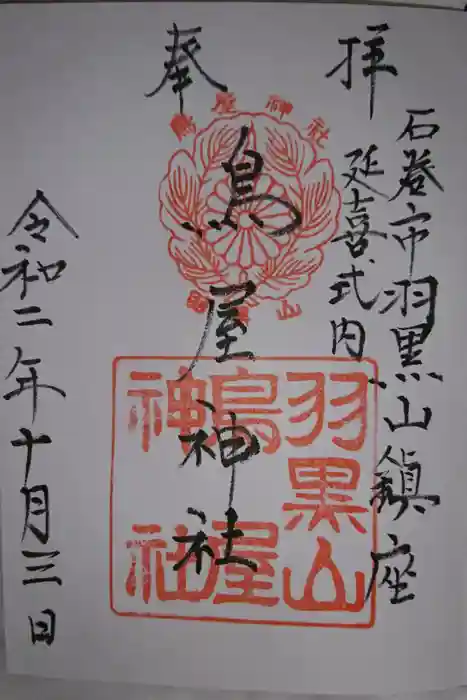 奉拝
石巻市羽黒山鎮座
延喜式内
鳥屋神社
令和二年十月三日
鳥屋神社
羽黒山
羽黒山
鳥屋
神社